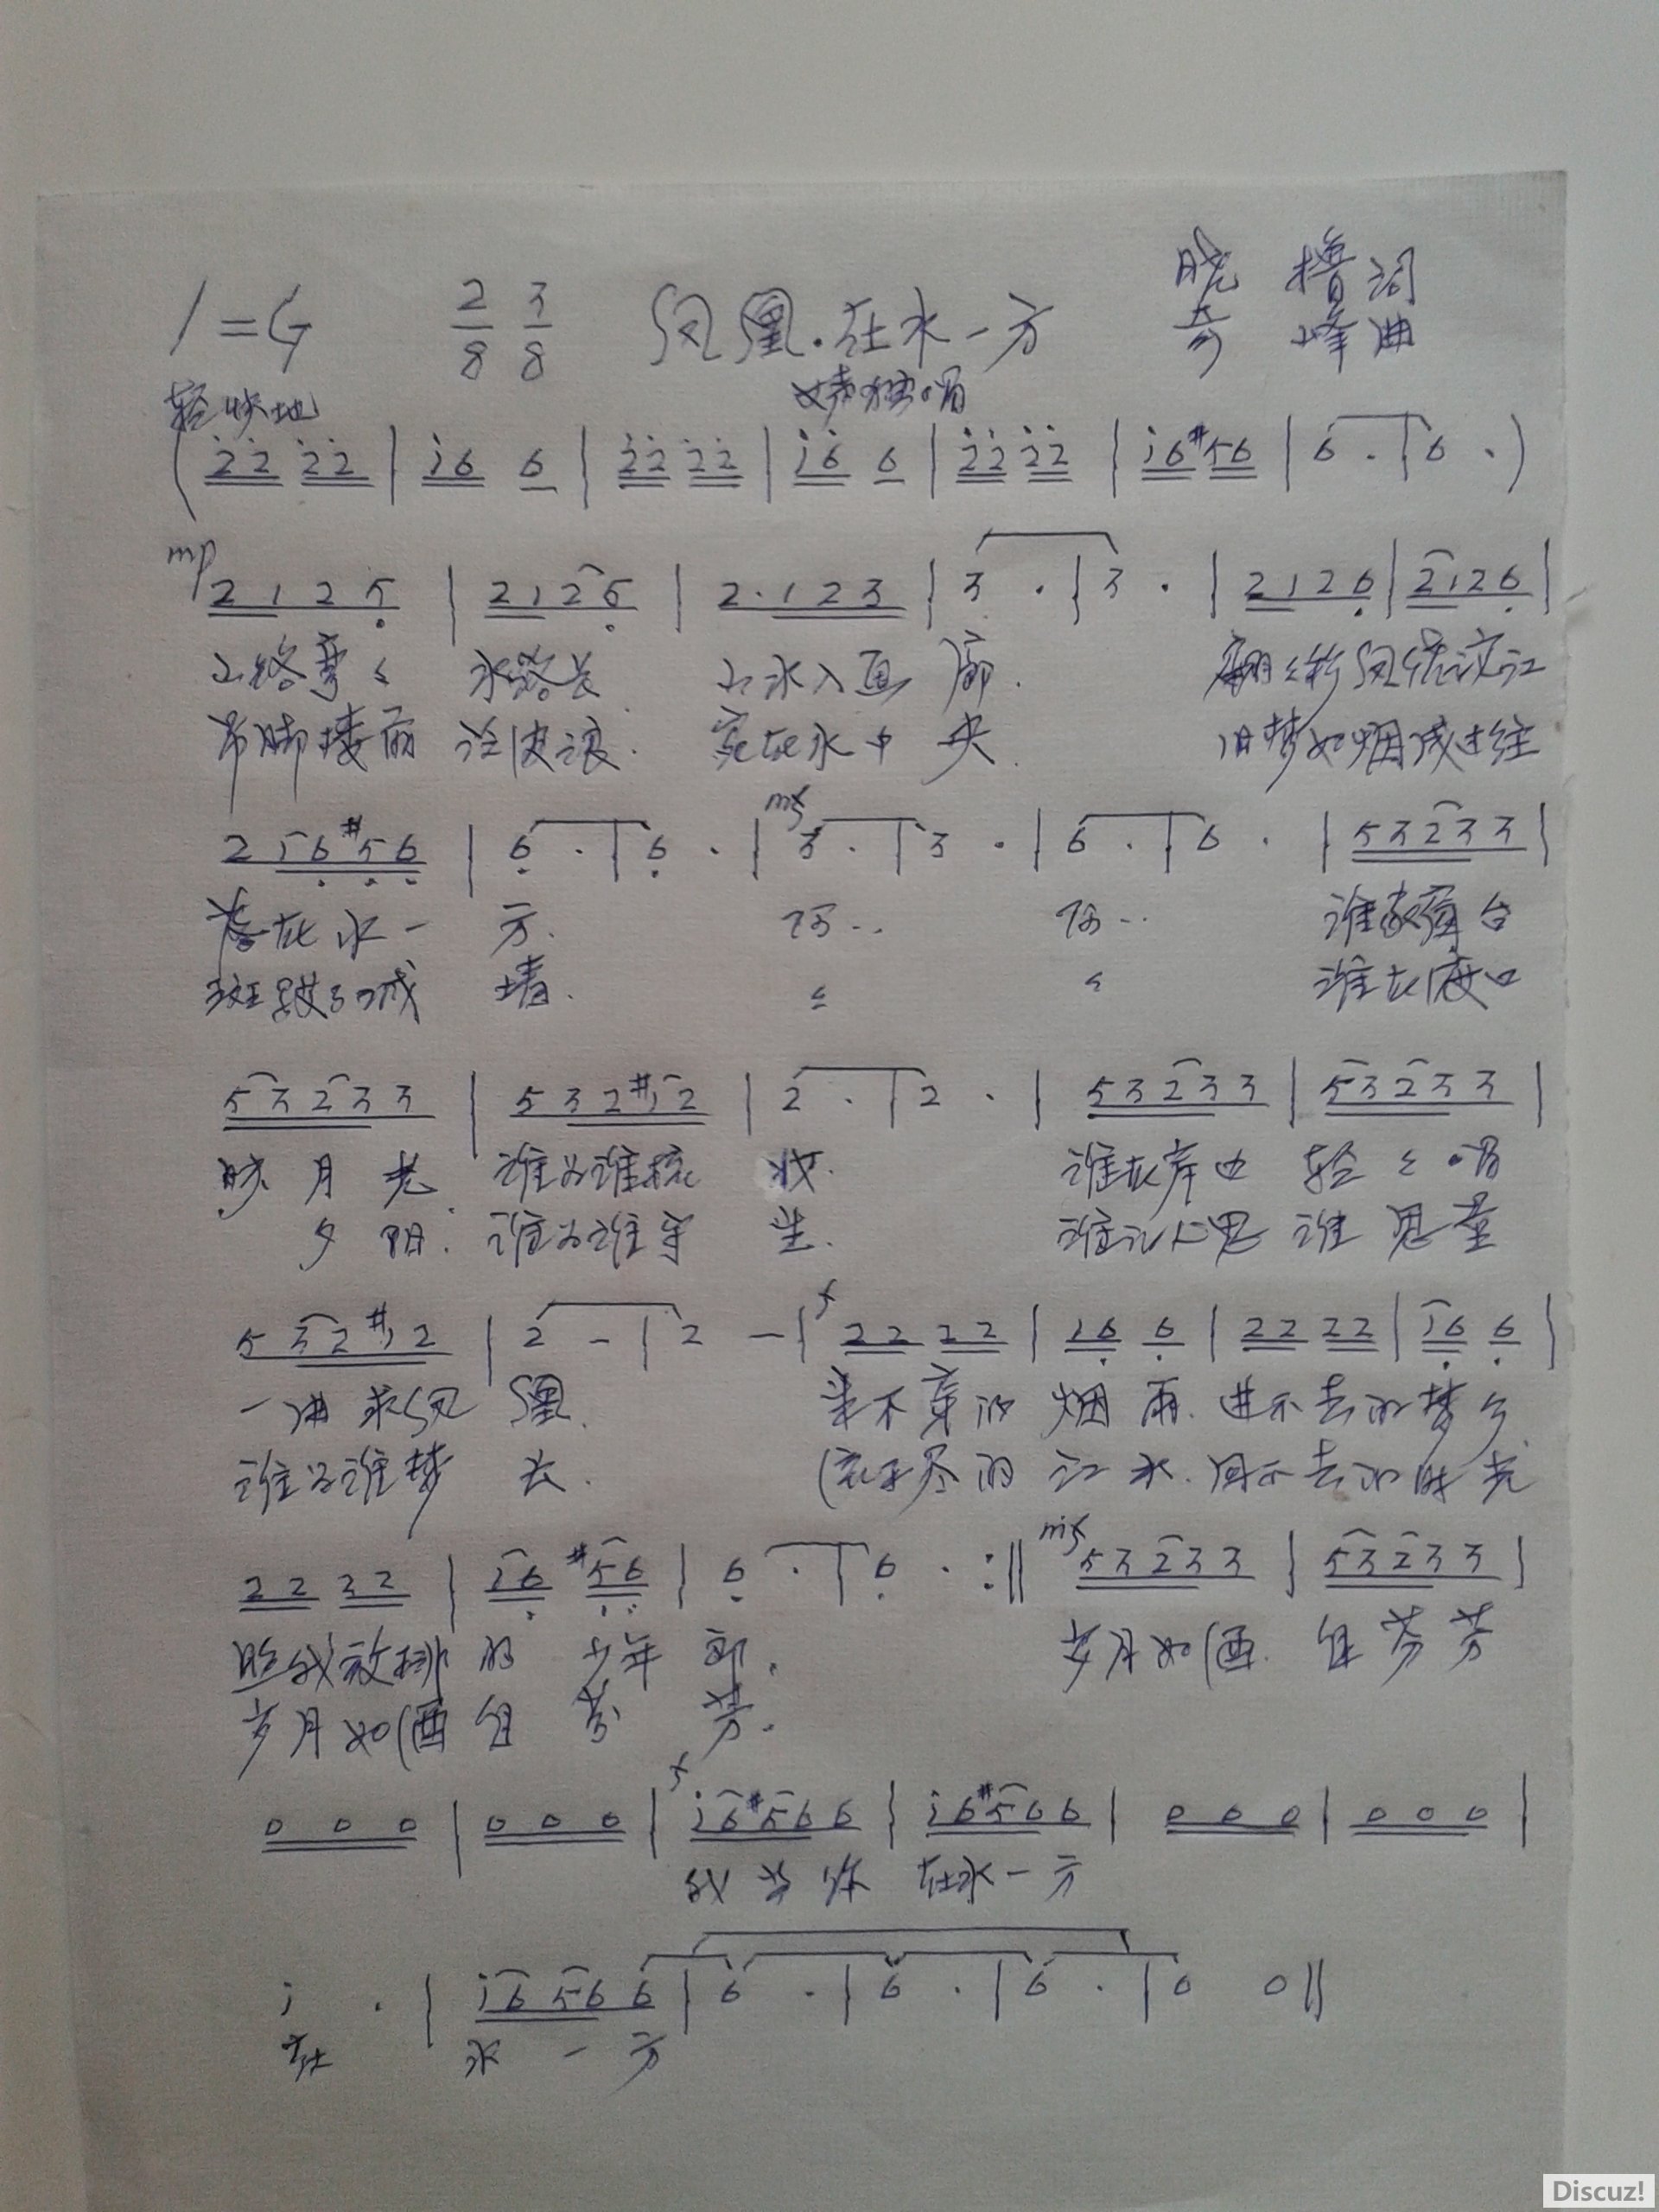 1=G 2/8 3/8 凤凰·在水一方 晓 橹 词
奇 峰 曲
轻快地 女声独唱
(2̇2̇ 2̇2̇ | i6 6 | 2̇2̇ 2̇2̇ | i6 6 | 2̇2̇ 2̇2̇ | i6 #56 | 6 · | 6 · )
mp
2 1 2 5 | 2 1 2 6 | 2·1 2 3 | 3 · | 3 · | 2 1 2 6 | 2 1 2 6 |
山路弯々 水路长 山水入画 廊. 翩々彩凤 沱江
吊脚楼前 波浪. 家在水中 央. 旧梦如烟成过往
2 1 6 #5 6 | 6 · | 6 · | mf 3 · | 3 · | 6 · | 6 · | 5 3 2 3 3 |
落在水一 方. 阿.. 阿.. 谁家 台
斑 的城 墙. 谁在渡口
5 3 2 3 3 | 5 3 2 #1 2 | 2 · | 2 · | 5 3 2 3 3 | 5 3 2 3 3 |
映 月 光. 谁为谁梳 妆. 谁在岸边 轻々唱
夕 阳. 谁为谁守 谁 心思 谁 思量
5 3 2 #1 2 | 2 - | 2 - | f 2 2 2 2 | 1 6 6 | 2 2 2 2 | 1 6 6 |
一曲求凤 凰. 来不 的 烟 雨. 进不去的梦乡.
谁为谁梦 长. 流不尽的 江 水. 回不去的时光
2 2 2 2 | i6 #56 | 6 · | 6 · :‖ mf 5 3 2 3 3 | 5 3 2 3 3 |
我放排 的 少年 郎. 岁月如酒. 自芬芳
岁月如酒 自 芬 芳.
0 0 0 | 0 0 0 | f i 6 #5 6 6 | i 6 #5 6 6 | 0 0 0 | 0 0 0 |
我 你 在水一方
i · | i 6 5 6 6 | 6 · | 6 · | 6 · | 6 0 ‖
在 水 一 方
Discuz!